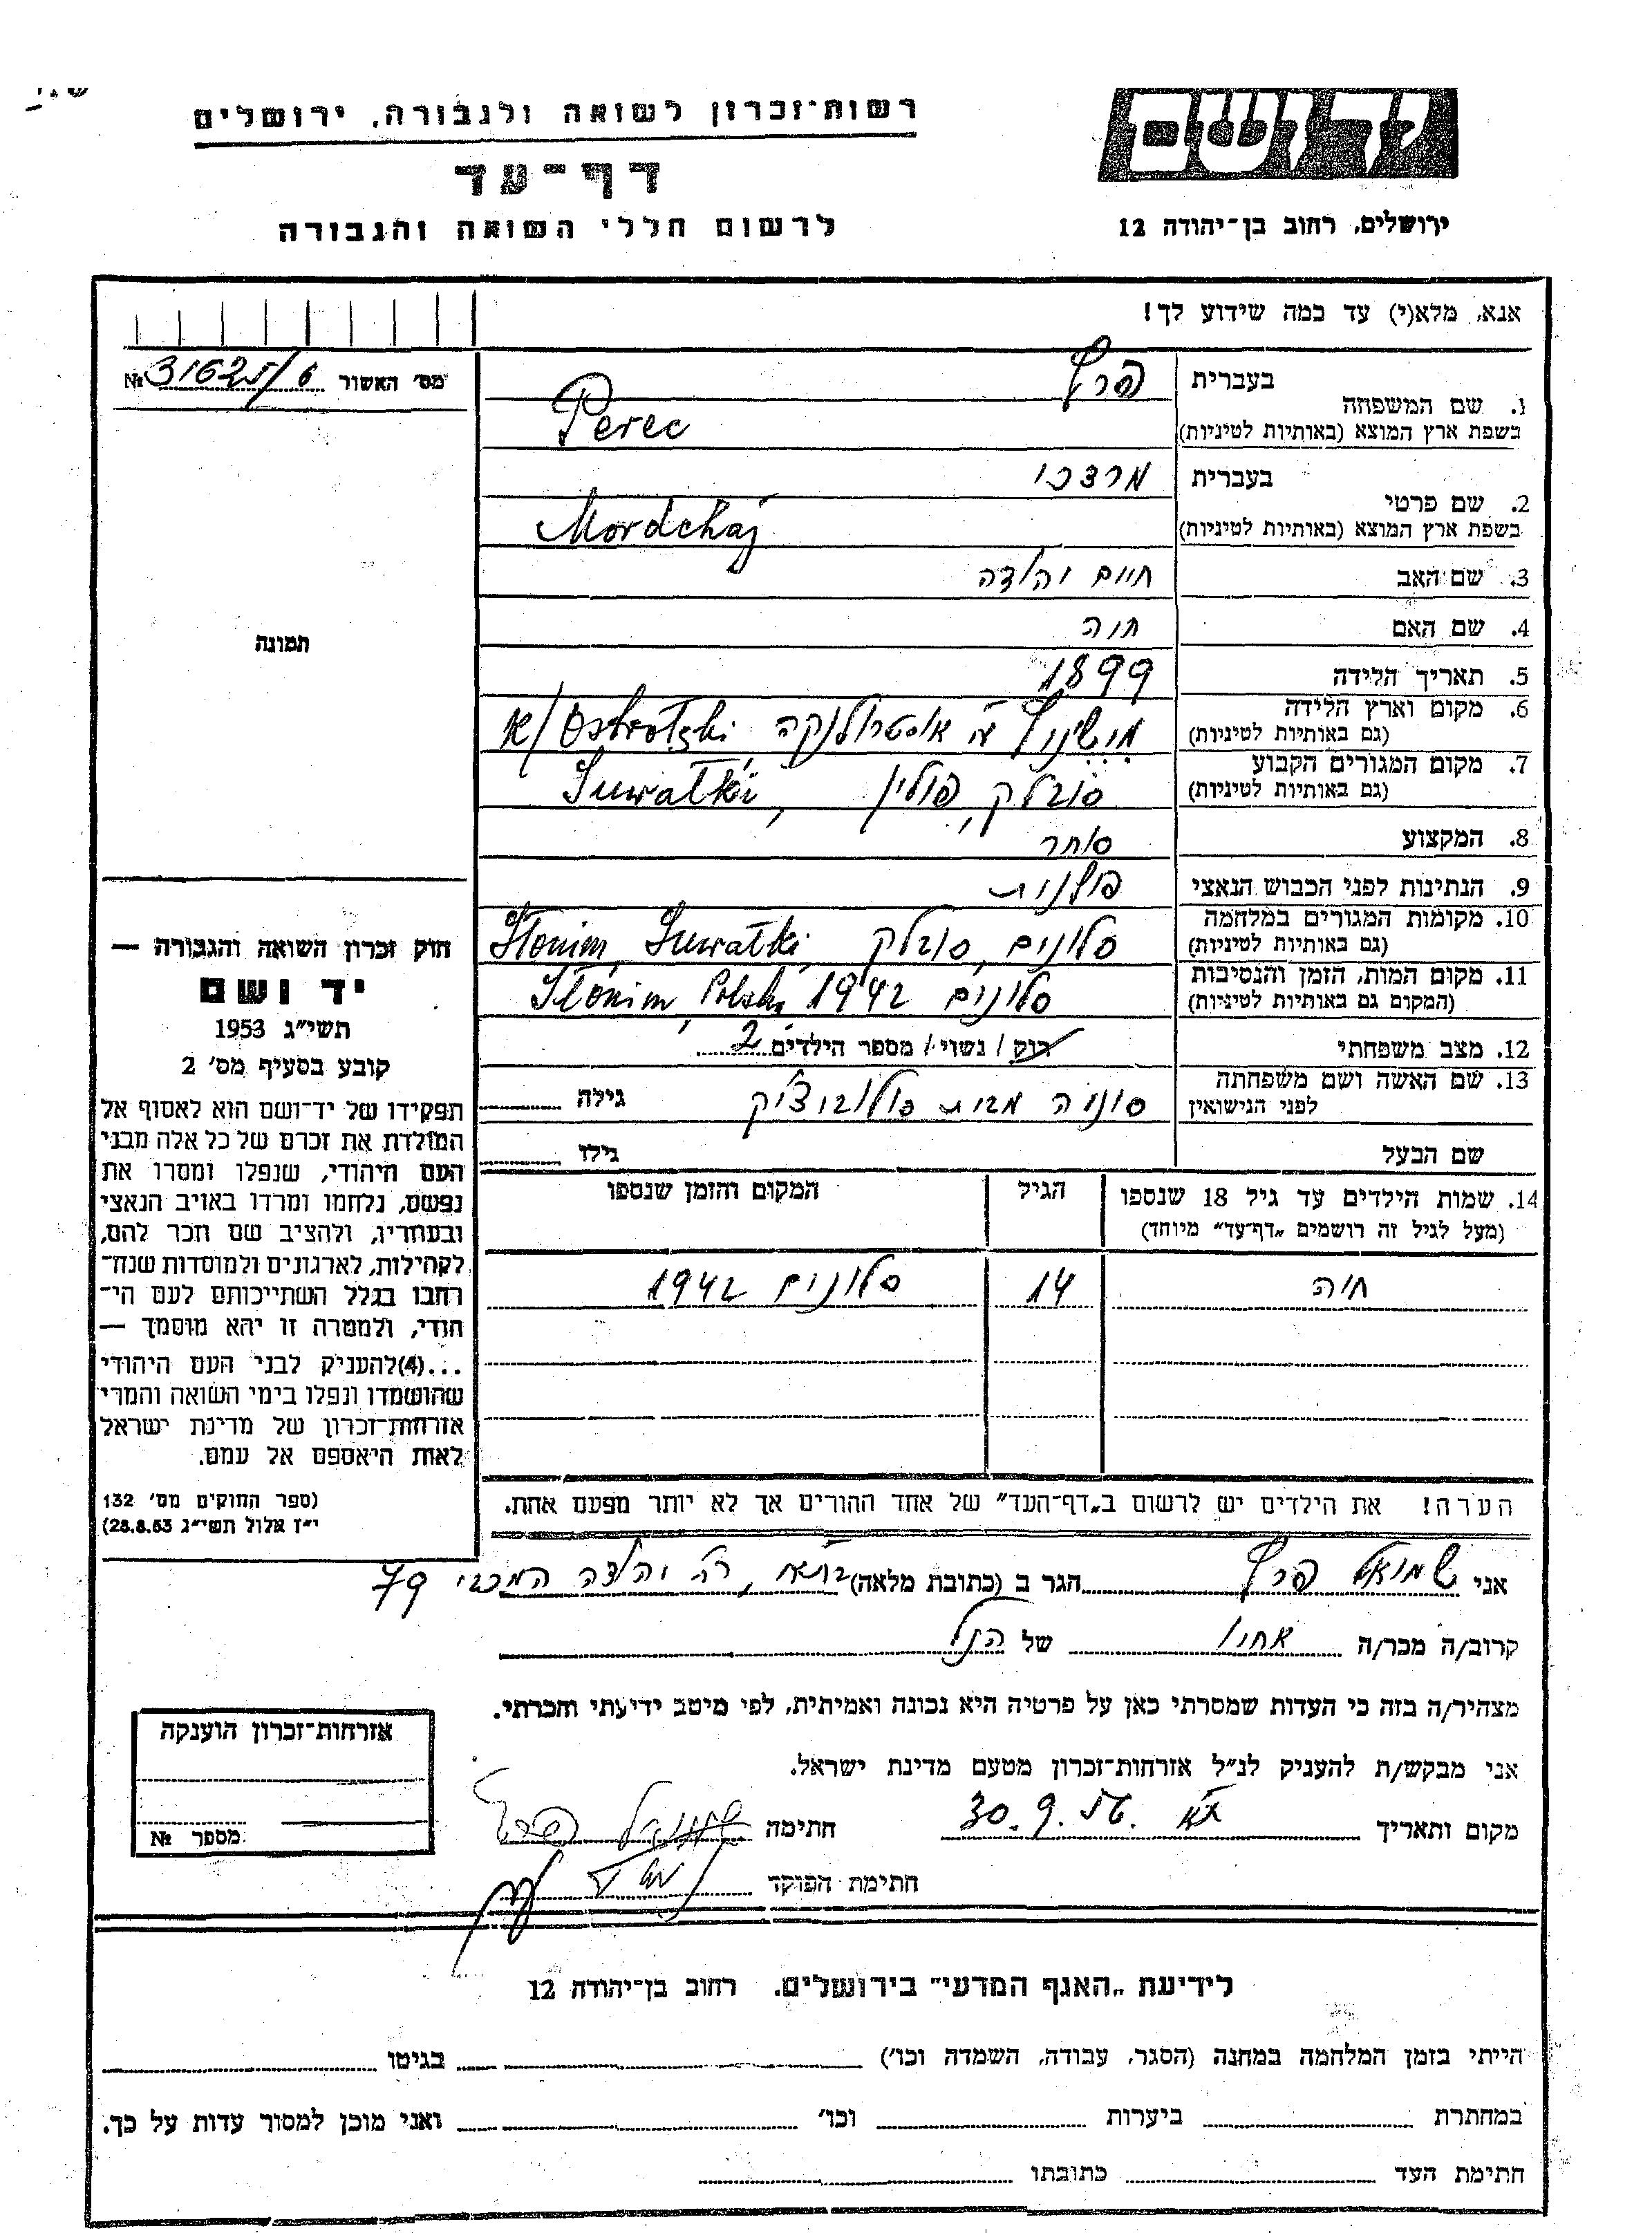 רשות־זכרון לשואה ולגבורה, ירושלים
יד ושם
דף־עד
לרשום חללי השואה והגבורה
ירושלים, רחוב בן־יהודה 12
אנא, מלא(י) עד כמה שידוע לך!
מס' האשור 31625/6 №
1. שם המשפחה בעברית פרץ
בשפת ארץ המוצא (באותיות לטיניות) Perec
2. שם פרטי בעברית מרדכי
בשפת ארץ המוצא (באותיות לטיניות) Mordchaj
3. שם האב חיים יהודה
4. שם האם חוה
5. תאריך הלידה 1899
6. מקום וארץ הלידה
(גם באותיות לטיניות) אוסטרולנקה K/Ostrołęki
7. מקום המגורים הקבוע
(גם באותיות לטיניות) סובלק, פולין Suwałki,
8. המקצוע סוחר
9. הנתינות לפני הכבוש הנאצי פולנית
10. מקומות המגורים במלחמה
(גם באותיות לטיניות) סלונים, סובלק Słonim, Suwałki
11. מקום המות, הזמן והנסיבות
(המקום גם באותיות לטיניות) סלונים 1942 Słonim, Polska
12. מצב משפחתי רוק / נשוי / מספר הילדים 2
13. שם האשה ושם משפחתה
לפני הנישואין סוניה מבית גילה
שם הבעל גילו
14. שמות הילדים עד גיל 18 שנספו הגיל המקום והזמן שנספו
(מעל לגיל זה רושמים „דף־עד" מיוחד)
חוה 14 סלונים 1942
הערה! את הילדים יש לרשום ב„דף־העד" של אחד ההורים אך לא יותר מפעם אחת.
תמונה
חוק זכרון השואה והגבורה —
יד ושם
תשי"ג 1953
קובע בסעיף מס' 2
תפקידו של יד־ושם הוא לאסוף אל
המולדת את זכרם של כל אלה מבני
העם היהודי, שנפלו ומסרו את
נפשם, נלחמו ומרדו באויב הנאצי
ובעוזריו, ולהציב שם וזכר להם,
לקהילות, לארגונים ולמוסדות שנח־
רבו בגלל השתייכותם לעם הי־
הודי, ולמטרה זו יהא מוסמך —
...(4)להעניק לבני העם היהודי
שהושמדו ונפלו בימי השואה והמרי
אזרחות־זכרון של מדינת ישראל
לאות היאספם אל עמם.
(ספר החוקים מס' 132
י"ז אלול תשי"ג 28.8.53)
אני שמואל פרץ הגר ב (כתובת מלאה) ת"א, רח' יהודה המכבי 79
קרוב/ה מכר/ה אחיו של הנ"ל
מצהיר/ה בזה כי העדות שמסרתי כאן על פרטיה היא נכונה ואמיתית, לפי מיטב ידיעתי והכרתי.
אני מבקש/ת להעניק לנ"ל אזרחות־זכרון מטעם מדינת ישראל.
מקום ותאריך ת"א 30.9.56 חתימה שמואל פרץ
חתימת הפוקד
אזרחות־זכרון הוענקה
מספר №
לידיעת „האגף המדעי" בירושלים. רחוב בן־יהודה 12
הייתי בזמן המלחמה במחנה (הסגר, עבודה, השמדה וכו') בגיטו
במחתרת ביערות וכו' ואני מוכן למסור עדות על כך.
חתימת העד כתובתו